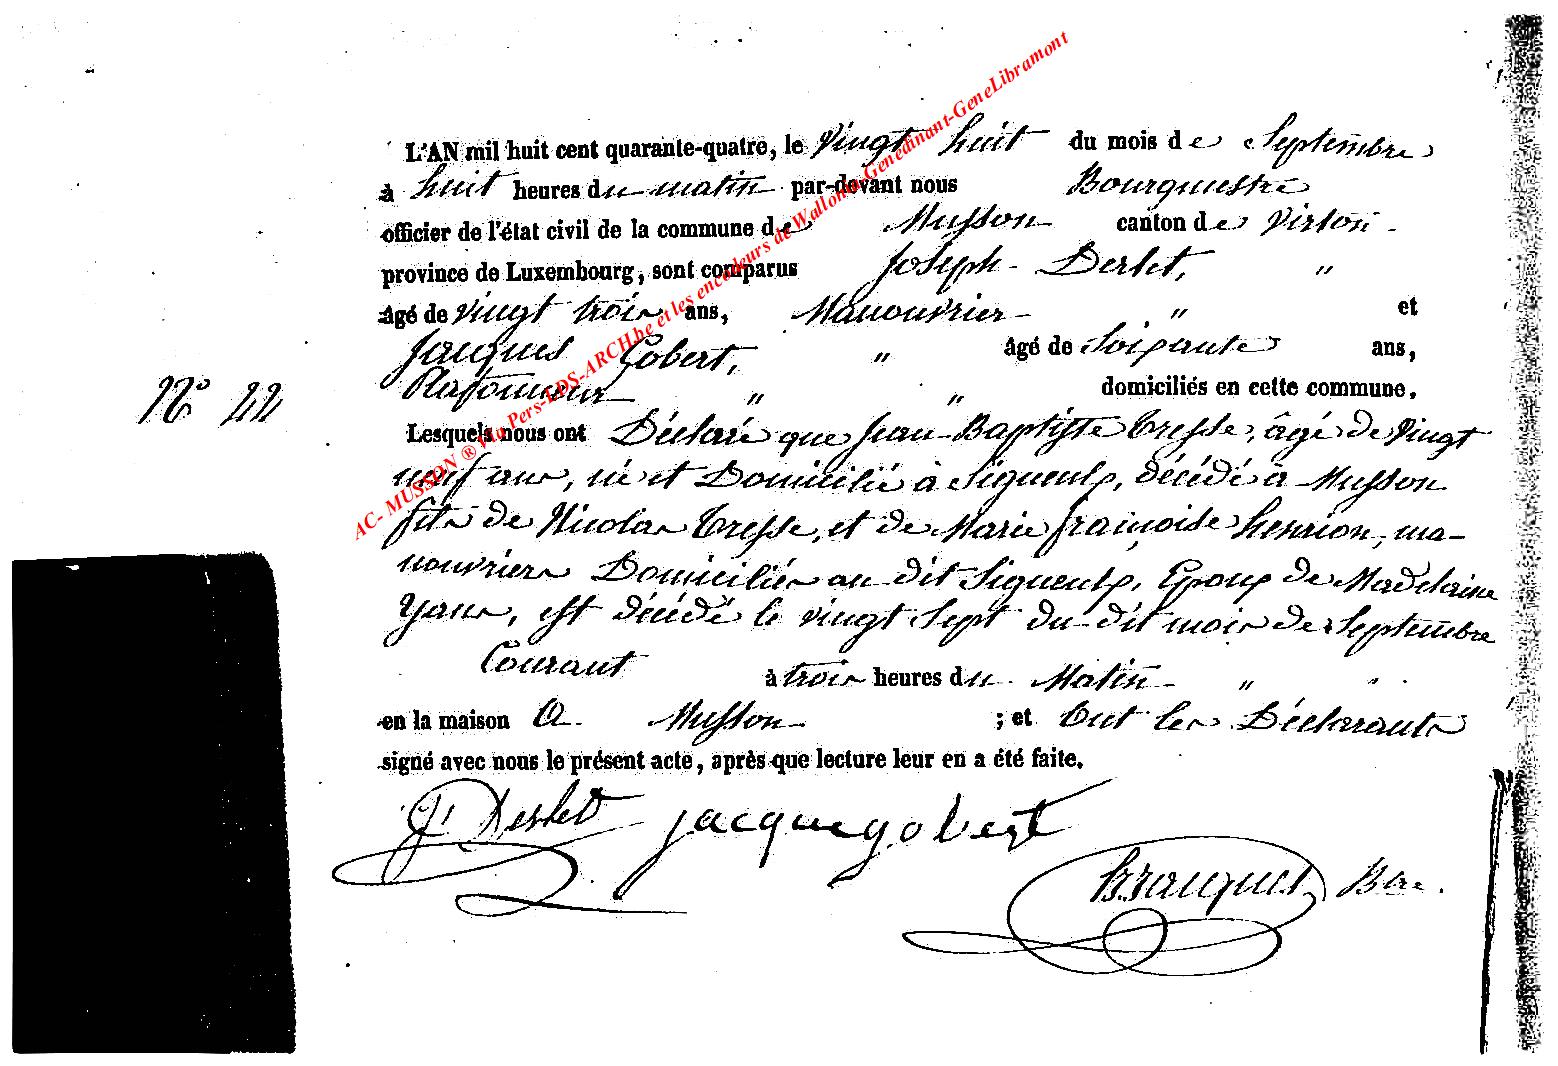 L'AN mil huit cent quarante-quatre, le Vingt huit du mois de Septembre
à huit heures du matin par-devant nous Bourguestre
officier de l'état civil de la commune de Musson canton de Virton
province de Luxembourg, sont comparus Joseph Derlet, "
âgé de vingt trois ans, Manouvrier " et
Jacques Gobert, " âgé de Soixante ans,
Plafonneur " " domiciliés en cette commune.
N° 44
Lesquels nous ont Déclaré que Jean Baptiste Tresse, âgé de Vingt
neuf ans, né et Domicilié à Signeulx, décédé à Musson
fils de Nicolas Tresse, et de Marie françoise henrion, ma-
nouvriers Domiciliés au dit Signeulx, Epoux de Madelaine
Yans, est décédé le vingt Sept du dit mois de Septembre
Courant à trois heures du Matin " "
en la maison A Musson ; et Ont les Déclarants
signé avec nous le présent acte, après que lecture leur en a été faite.
J Derlet jacque gobert
Bre.
AC- MUSSON ® Via Pers-LDS-ARCH.be et les encodeurs de Wallonia-Genedinant-GeneLibramont